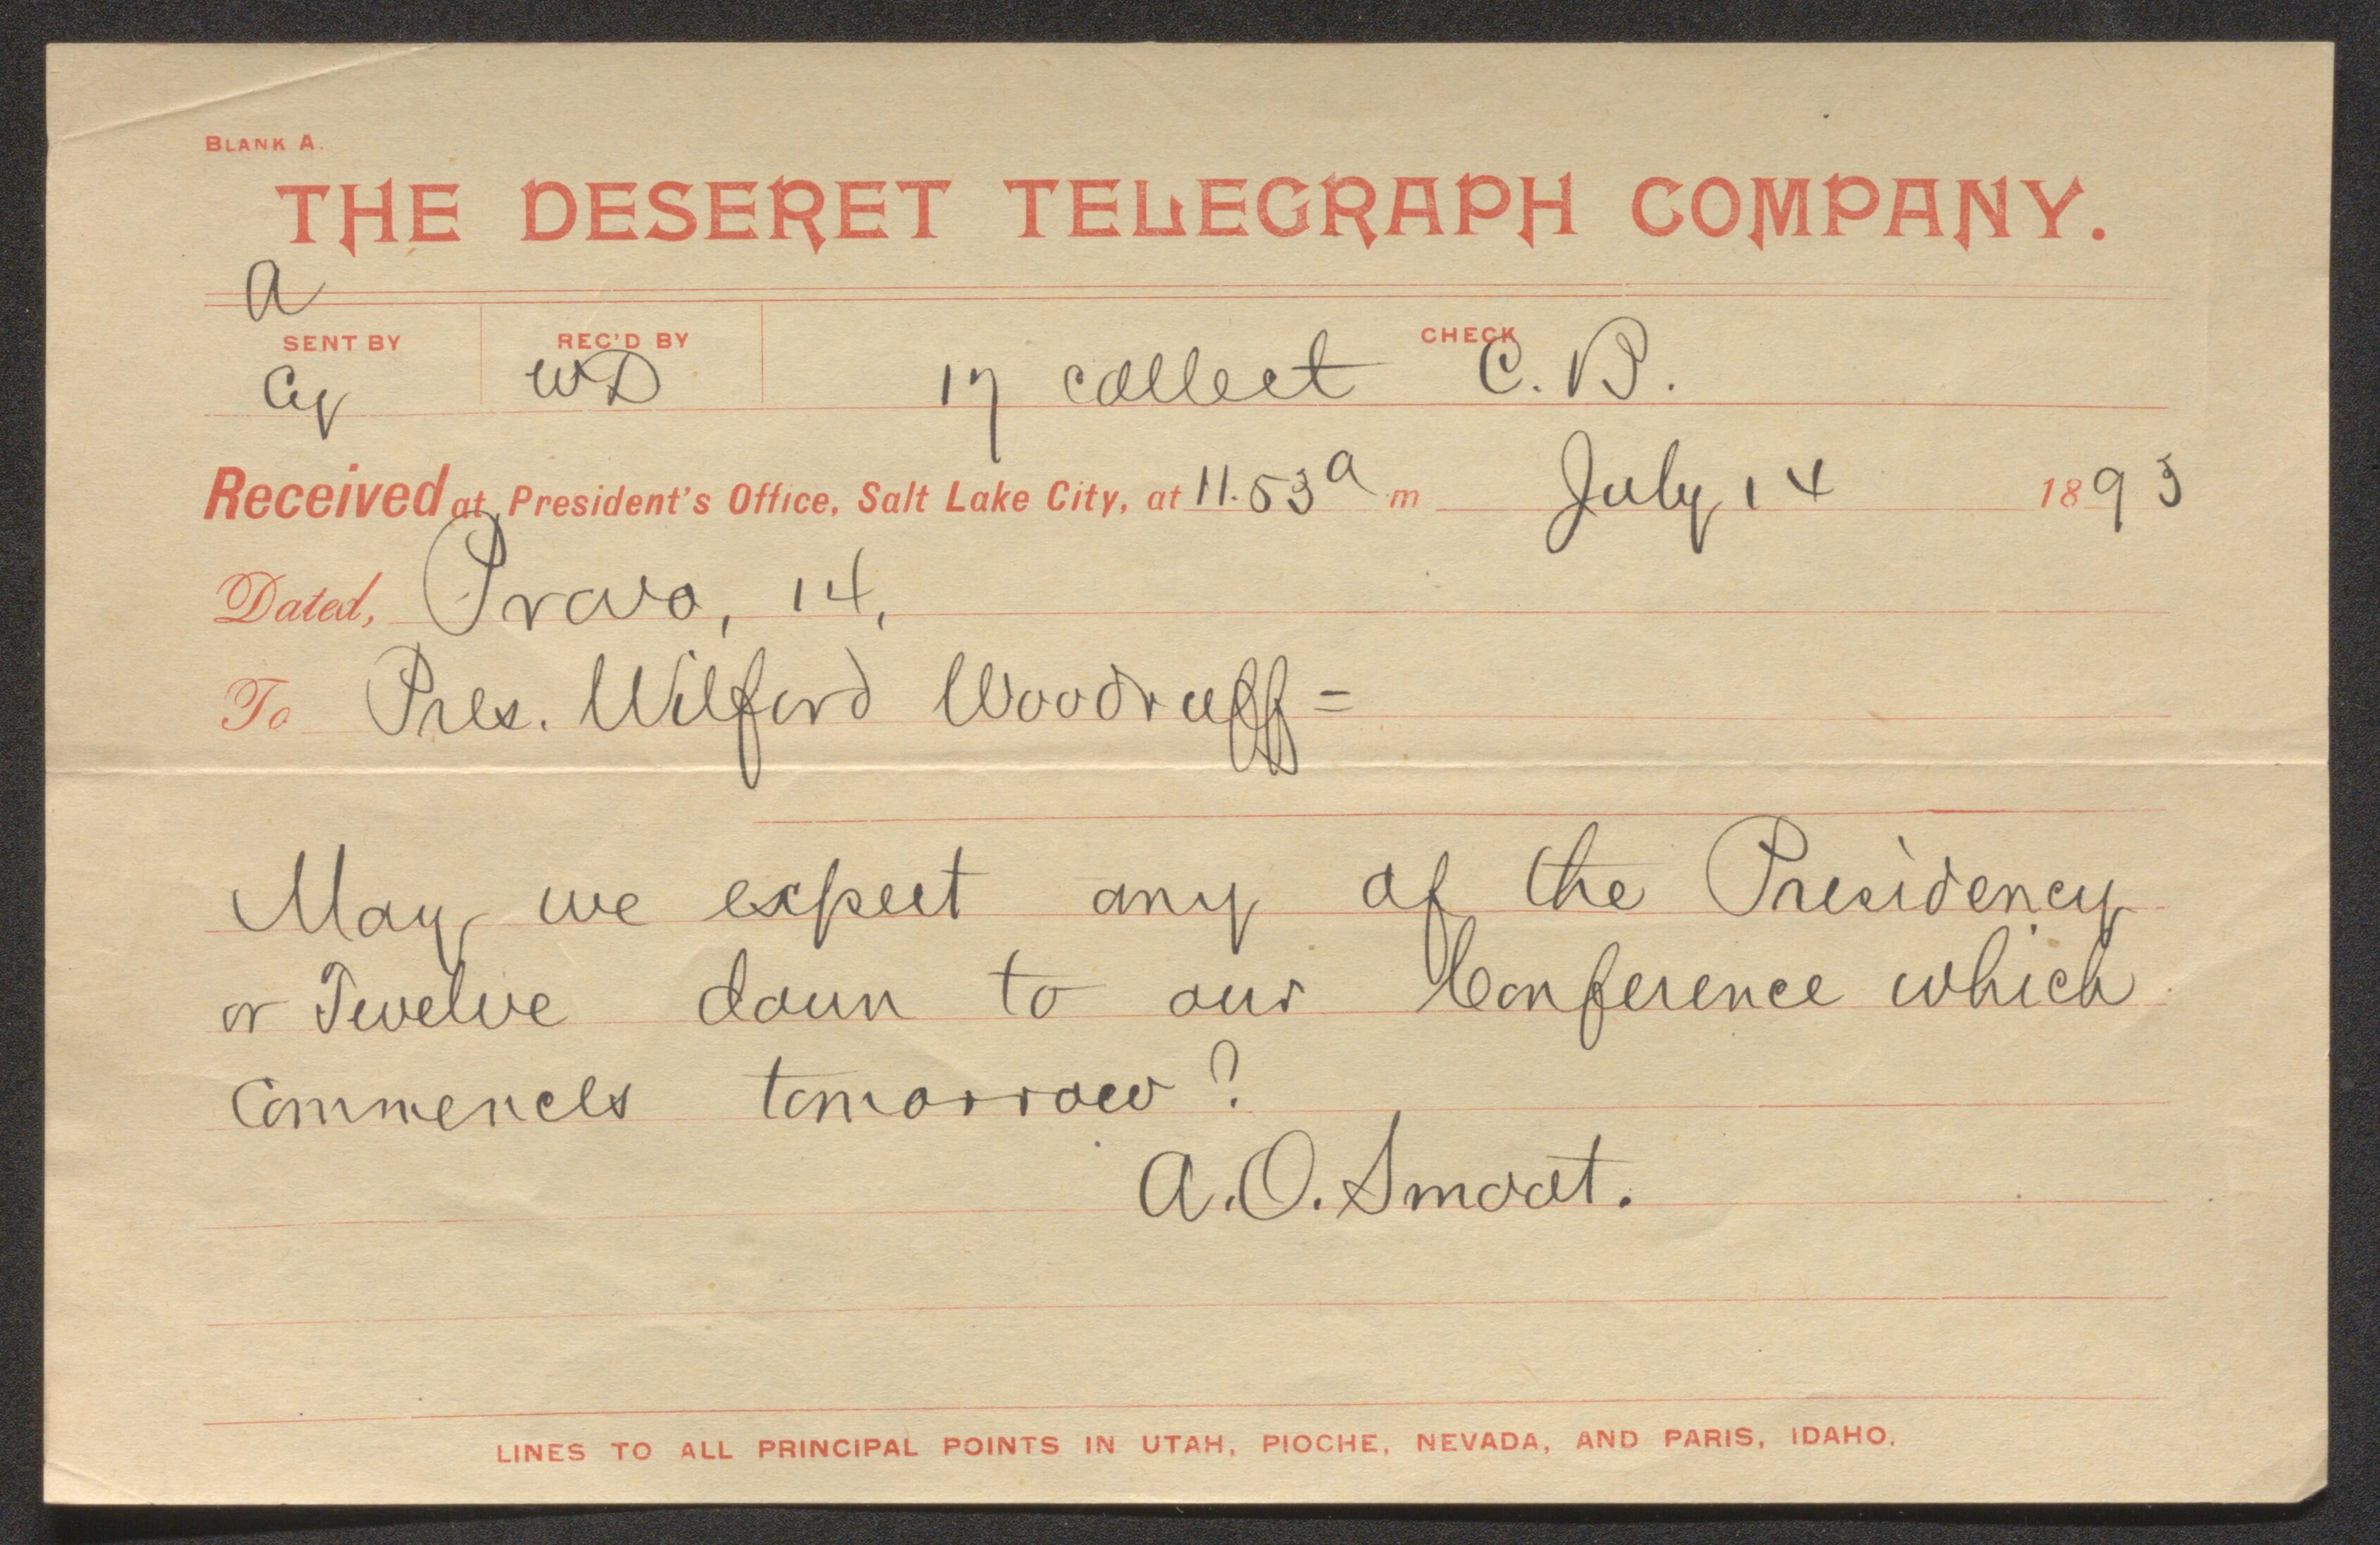 BLANK A.
THE DESERET TELEGRAPH COMPANY.
a
SENT BY REC'D BY CHECK
Cy WD 17 collect C.B.
Received at President's Office, Salt Lake City, at 11.53 a m July 14 1893
Dated, Provo, 14,
To Pres. Wilford Woodruff =
May we expect any of the Presidency
or Twelve down to our Conference which
Commences tomorrow?
A.O. Smoot.
LINES TO ALL PRINCIPAL POINTS IN UTAH, PIOCHE, NEVADA, AND PARIS, IDAHO.